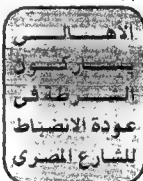 الأهالي
يشاركون
الشرطة فى
عودة الانضباط
للشارع المصرى